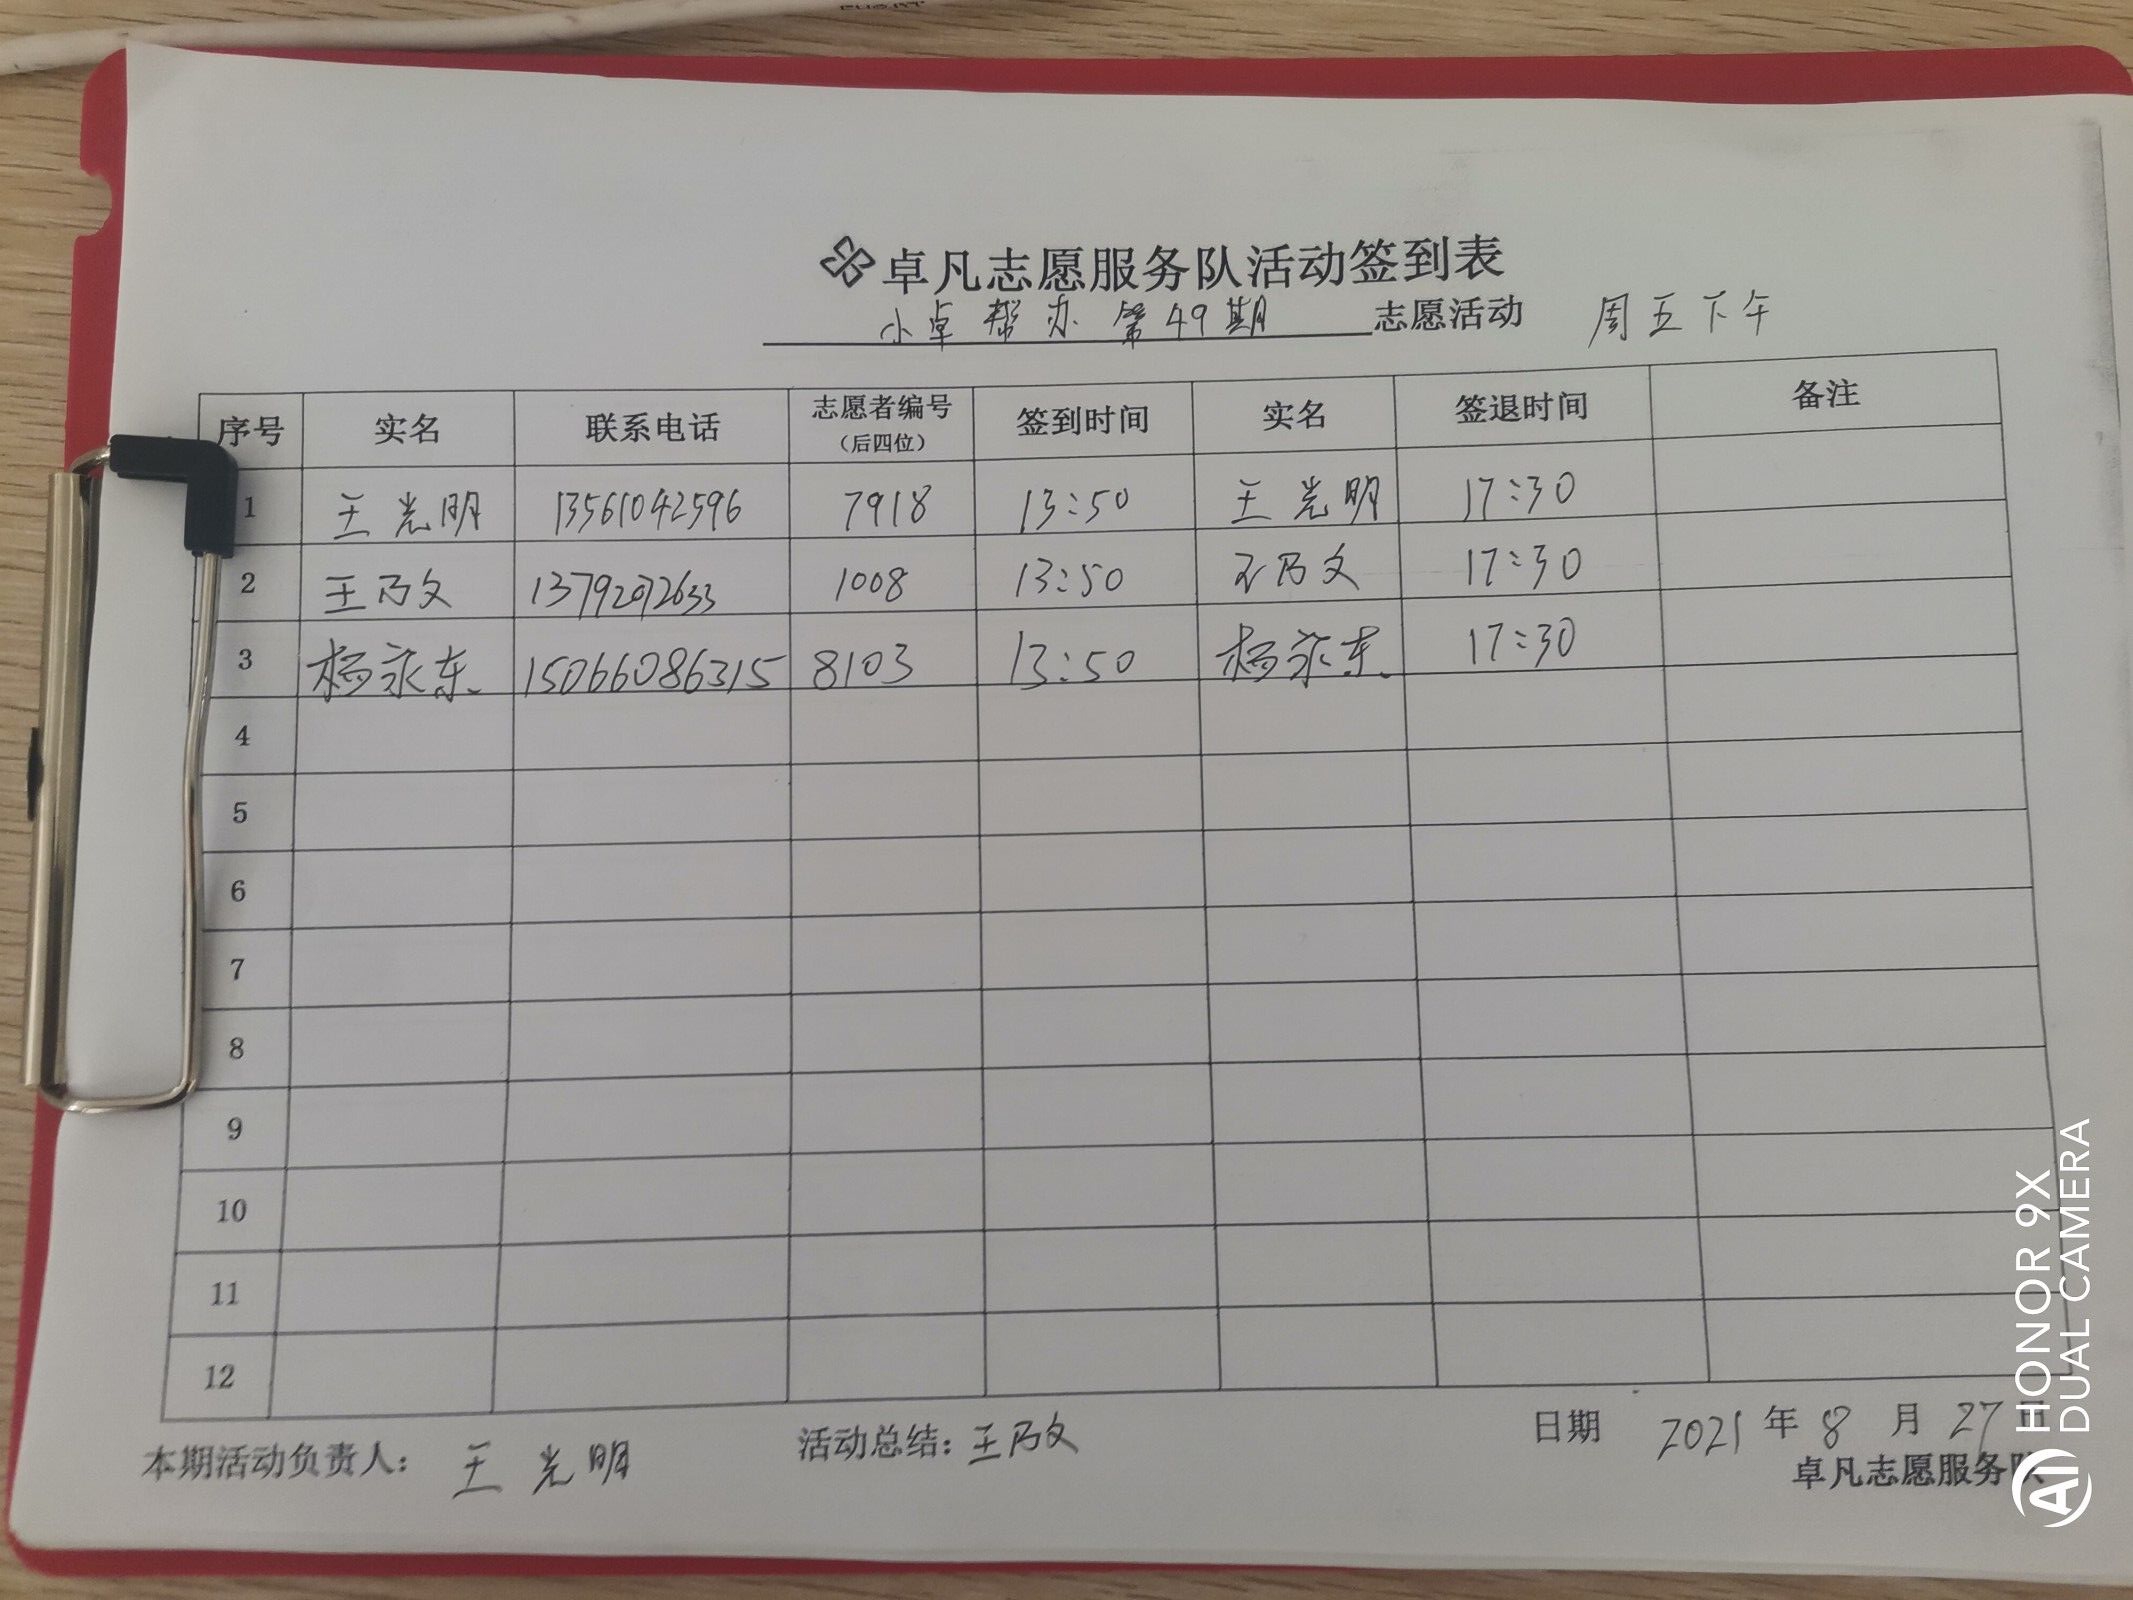 卓凡志愿服务队活动签到表
小卓帮办第49期 志愿活动 周五下午
序号 实名 联系电话 志愿者编号（后四位） 签到时间 实名 签退时间 备注
1 王光明 13561042596 7918 13:50 王光明 17:30
2 王乃文 13792072633 1008 13:50 王乃文 17:30
3 杨永东 15066086315 8103 13:50 杨永东 17:30
4
5
6
7
8
9
10
11
12
本期活动负责人： 王光明 活动总结：王乃文 日期 2021年8月27日
卓凡志愿服务队
HONOR 9X
DUAL CAMERA
AI